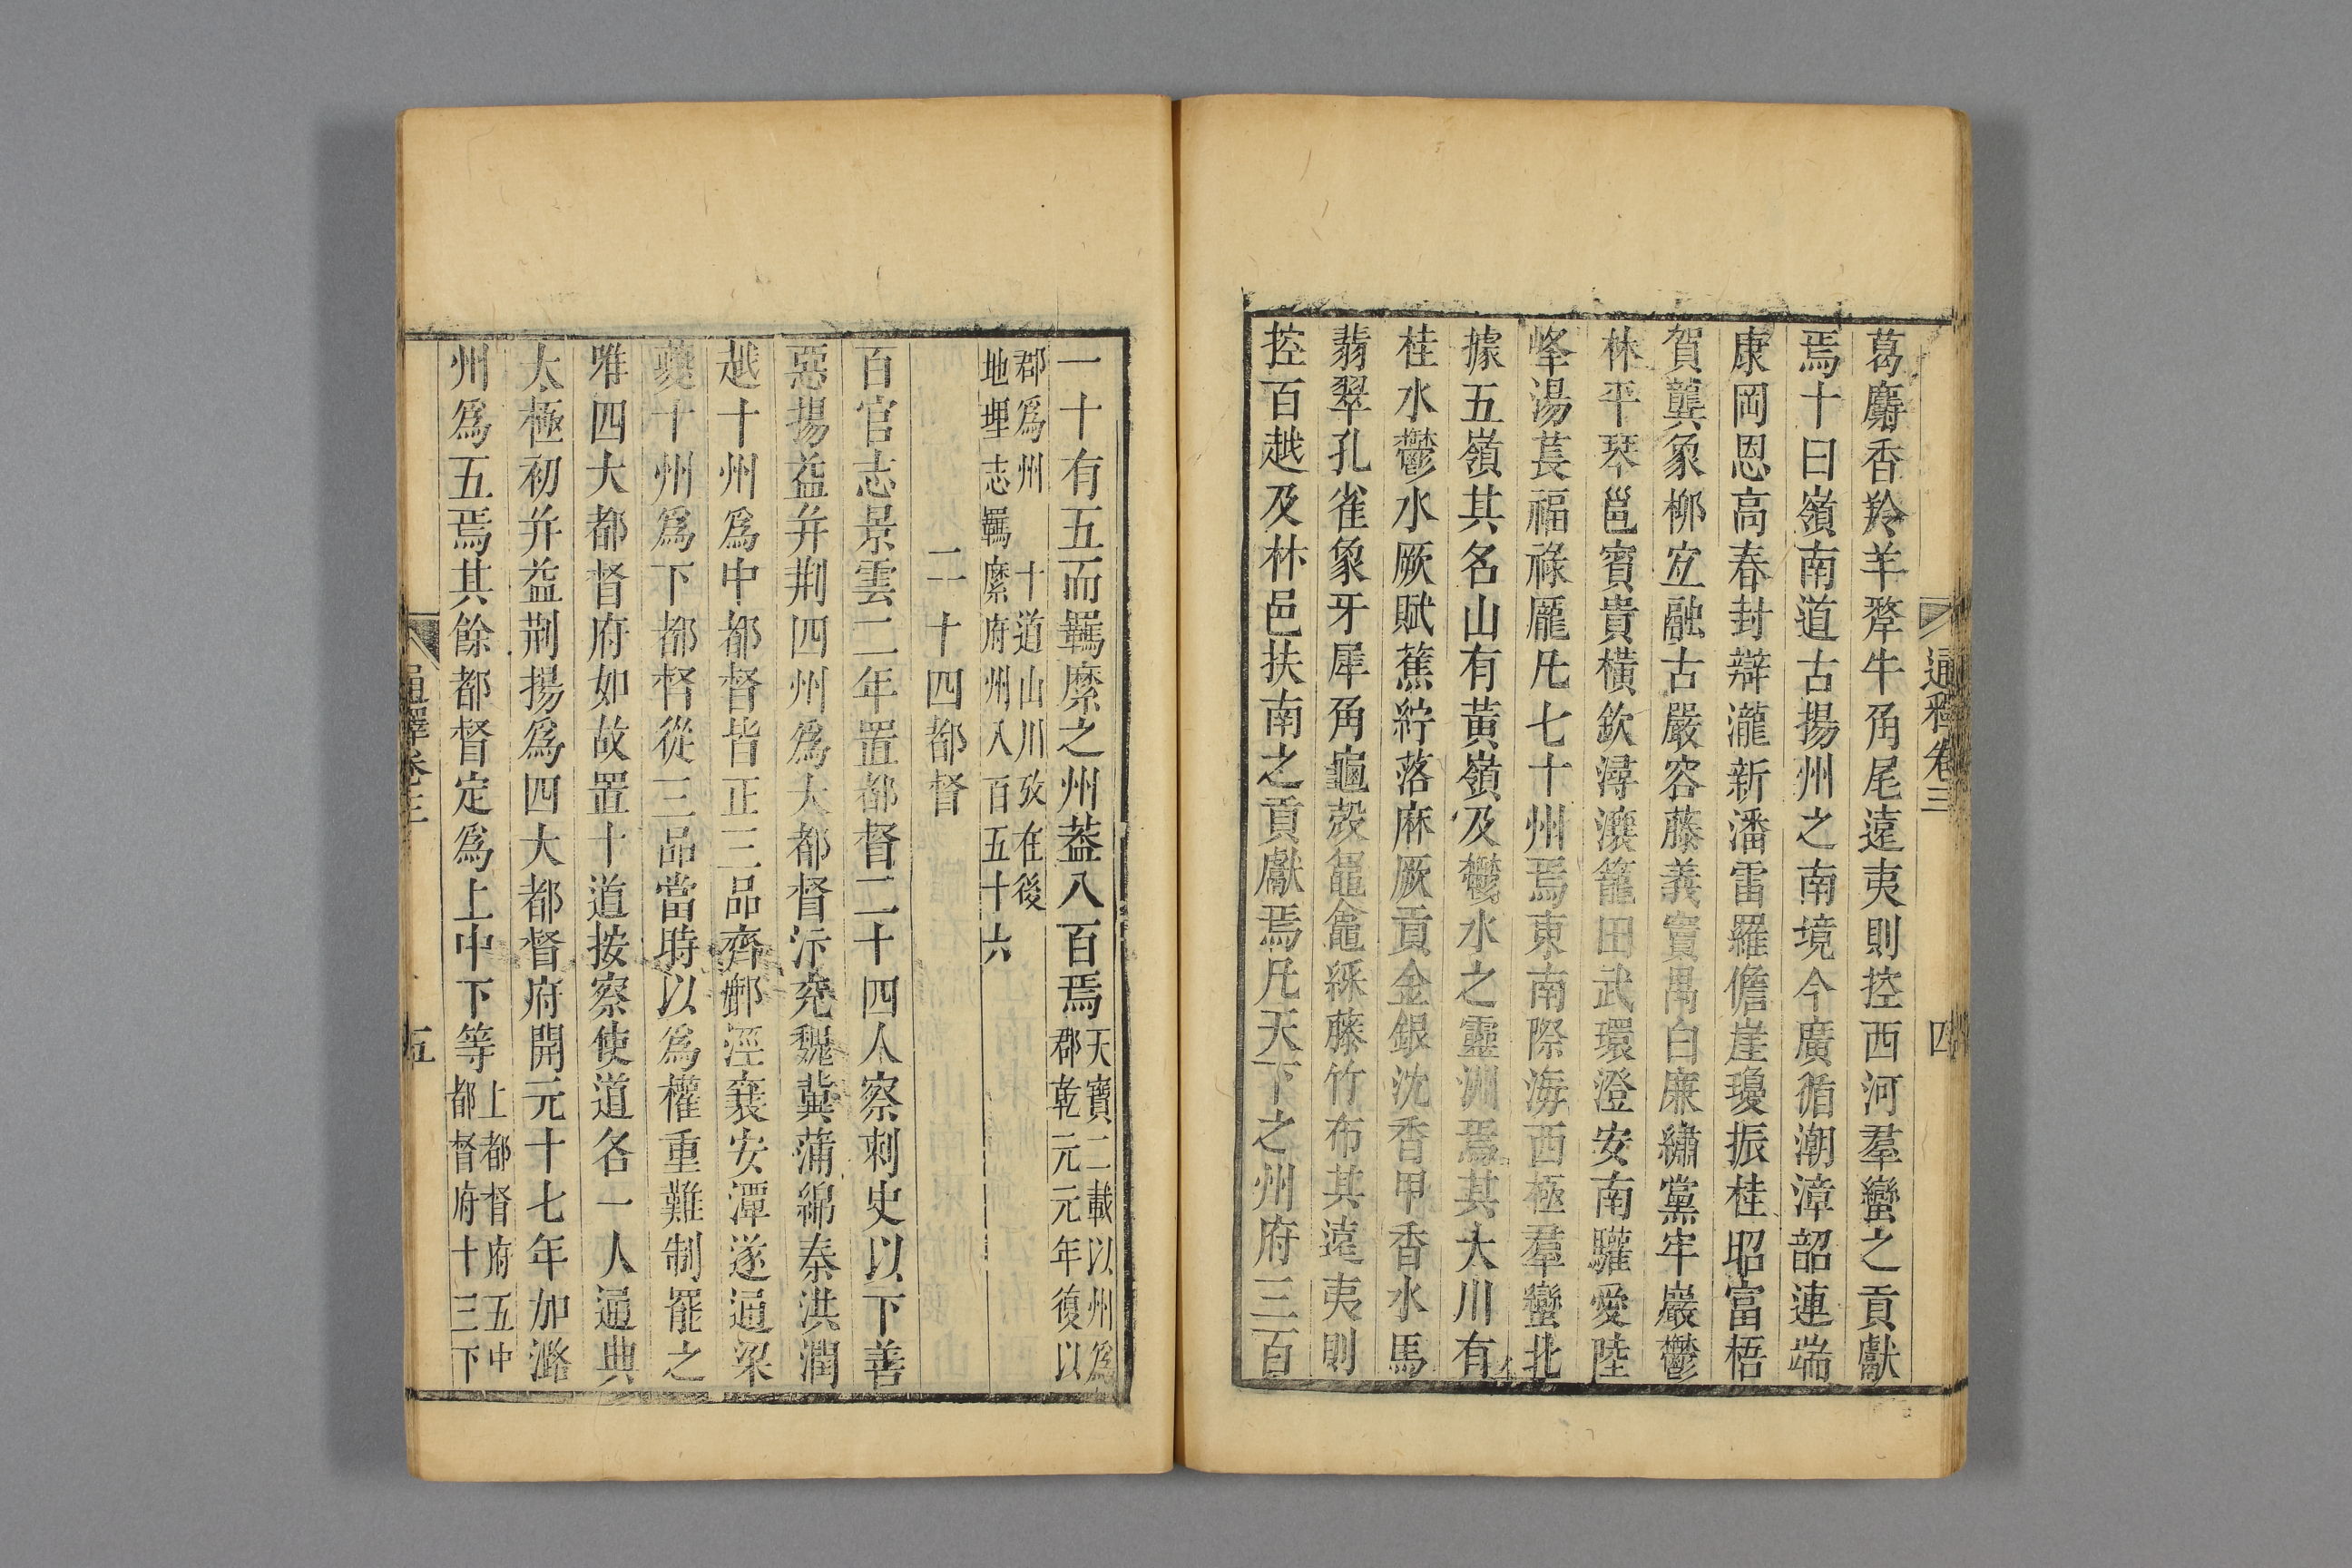 通釋卷三 四
葛麝香羚羊犛牛角尾遠夷則控西河羣蠻之貢獻
焉十曰嶺南道古揚州之南境今廣循潮漳韶連端
康岡恩高春封辯瀧新潘雷羅儋崖瓊振桂昭富梧
賀龔象柳宜融古嚴容藤義竇禺白廉繡黨牢巖鬱
林平琴邕賓貴橫欽潯瀼籠田武環澄安南驩愛陸
峰湯萇福祿龐凡七十州焉東南際海西極羣蠻北
據五嶺其名山有黃嶺及鬱水之靈洲焉其大川有
桂水鬱水厥賦蕉紵落麻厥貢金銀沈香甲香水馬
翡翠孔雀象牙犀角龜殼鼊綵藤竹布其遠夷則
控百越及林邑扶南之貢獻焉凡天下之州府三百
一十有五而羈縻之州蓋八百焉天寶二載以州爲
郡乾元元年復以
郡爲州 十道山川攷在後
地理志羈縻府州八百五十六
二十四都督
百官志景雲二年置都督二十四人察刺史以下善
惡揚益幷荆四州爲大都督汴兗魏冀蒲綿秦洪潤
越十州爲中都督皆正三品齊鄜涇襄安潭遂通梁
夔十州爲下都督從三品當時以爲權重難制罷之
唯四大都督府如故置十道按察使道各一人通典
太極初幷益荆揚爲四大都督府開元十七年加潞
州爲五焉其餘都督定爲上中下等上都督府五中
都督府十三下
通釋卷三 五